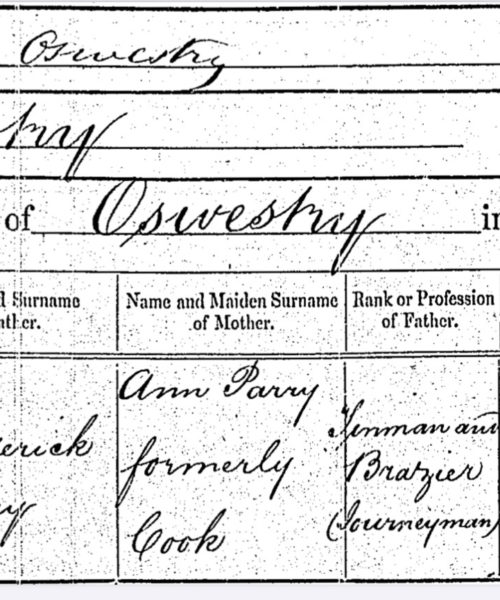 Oswestry
try
of Oswestry in
d Surname
ather.
Name and Maiden Surname
of Mother.
Rank or Profession
of Father.
erick
y
Ann Parry
formerly
Cook
Tinman and
Brazier
(Journeyman)